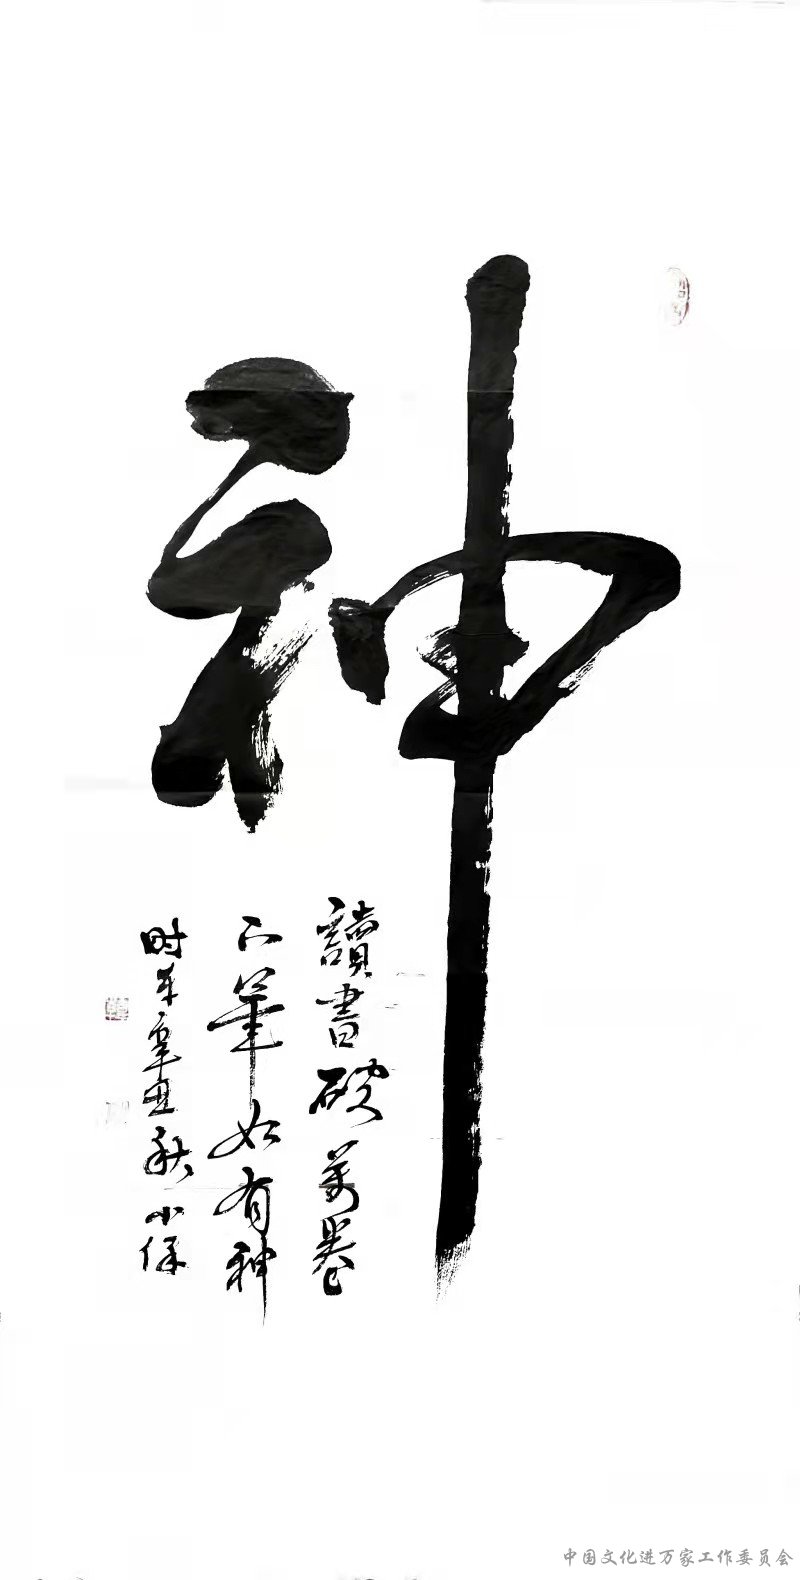 神
讀書破萬卷
下筆如有神
时年辛丑秋 小保
中国文化进万家工作委员会